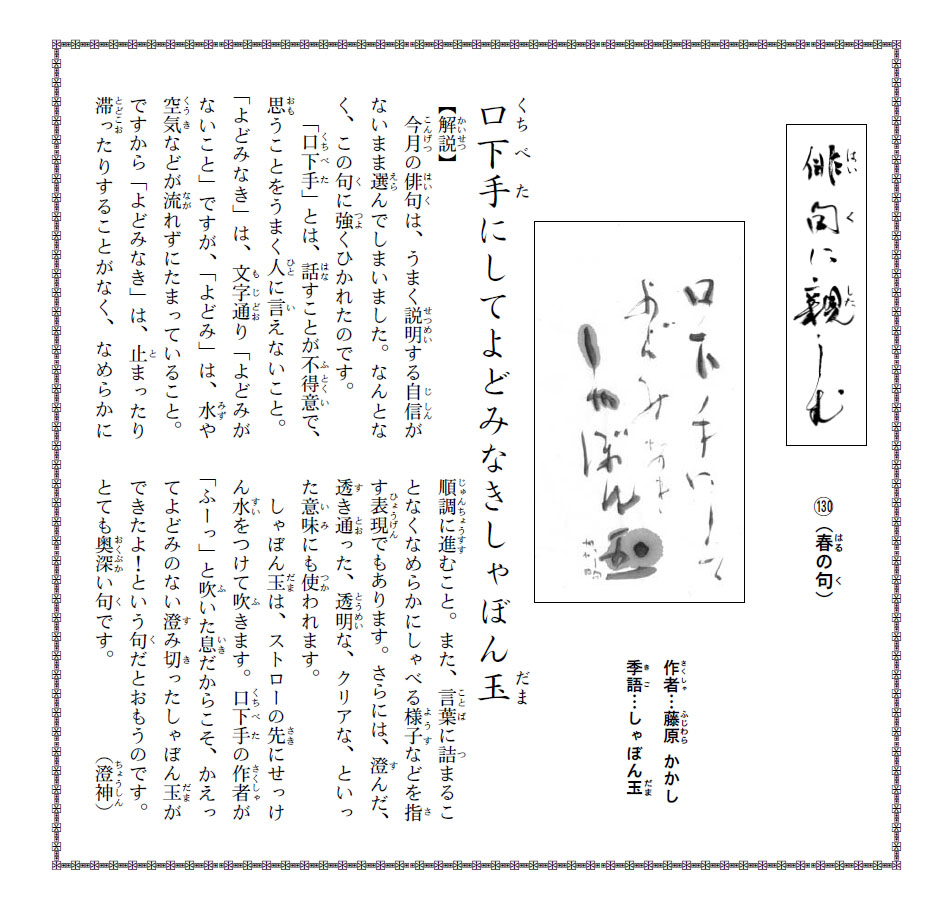 俳句に親しむ
130(春の句)
作者…藤原 かかし
季語…しゃぼん玉
口下手にして
よどみなき
しゃぼん玉
口下手にしてよどみなきしゃぼん玉
【解説】
今月の俳句は、うまく説明する自信が
ないまま選んでしまいました。なんとな
く、この句に強くひかれたのです。
「口下手」とは、話すことが不得意で、
思うことをうまく人に言えないこと。
「よどみなき」は、文字通り「よどみが
ないこと」ですが、「よどみ」は、水や
空気などが流れずにたまっていること。
ですから「よどみなき」は、止まったり
滞ったりすることがなく、なめらかに
順調に進むこと。また、言葉に詰まるこ
となくなめらかにしゃべる様子などを指
す表現でもあります。さらには、澄んだ、
透き通った、透明な、クリアな、といっ
た意味にも使われます。
しゃぼん玉は、ストローの先にせっけ
ん水をつけて吹きます。口下手の作者が
「ふーっ」と吹いた息だからこそ、かえっ
てよどみのない澄み切ったしゃぼん玉が
できたよ!という句だとおもうのです。
とても奥深い句です。
(澄神)